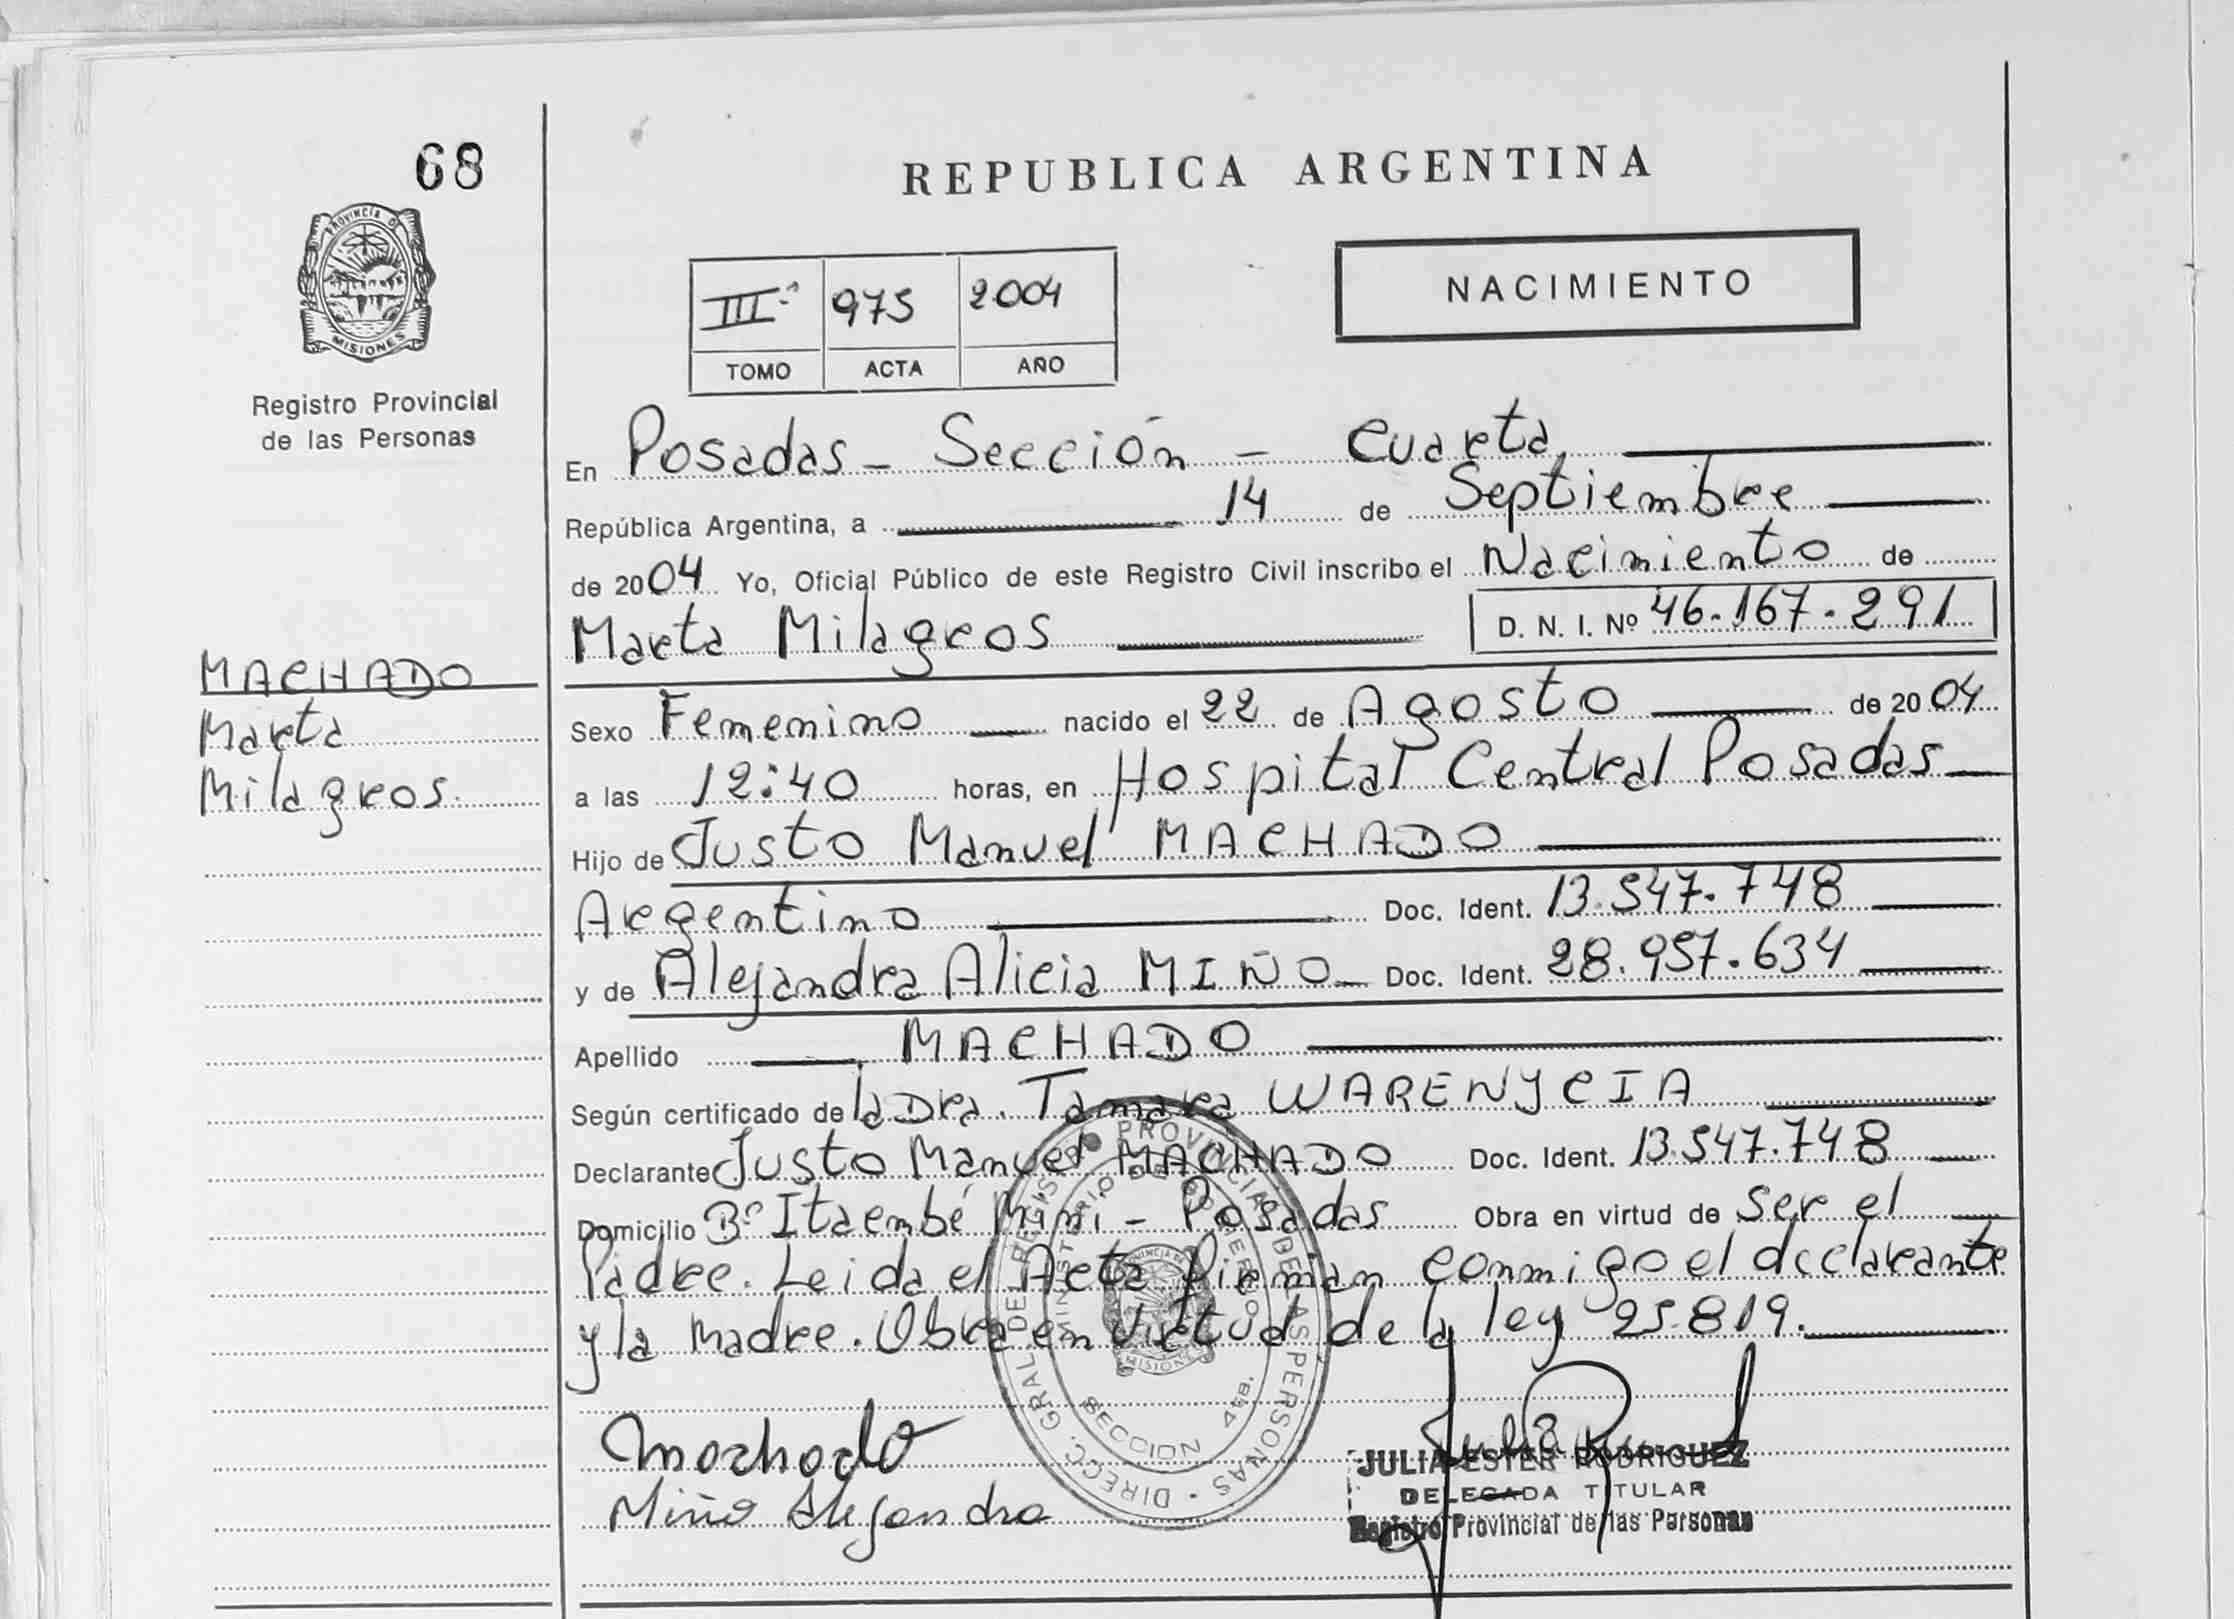 68
REPUBLICA ARGENTINA
PROVINCIA DE
MISIONES
Registro Provincial
de las Personas
III.ª 975 2004
TOMO ACTA AÑO
NACIMIENTO
En Posadas - Sección - Cuarta
República Argentina, a 14 de Septiembre
de 2004 Yo, Oficial Público de este Registro Civil inscribo el Nacimiento de
Marta Milagros D. N. I. Nº 46.167.291
MACHADO
Marta
Milagros.
Sexo Femenino nacido el 22 de Agosto de 2004
a las 12:40 horas, en Hospital Central Posadas
Hijo de Justo Manuel MACHADO
Argentino Doc. Ident. 13.547.748
y de Alejandra Alicia MIÑO Doc. Ident. 28.957.634
Apellido MACHADO
Según certificado de la Dra. Tamara WARENYCIA
Declarante Justo Manuel MACHADO Doc. Ident. 13.547.748
Domicilio Bº Itaembé Miní - Posadas Obra en virtud de Ser el
Padre. Leida el Acta firman conmigo el declarante
y la madre. Obra en virtud de la ley 25.819.
DIRECC. GRAL. DEL REGISTRO PROVINCIAL DE LAS PERSONAS
MINISTERIO DE GOBIERNO
SECCION 4TB.
PROVINCIA DE
MISIONES
Machado
Miño Alejandra
JULIA ESTER RODRIGUEZ
DELEGADA TITULAR
Registro Provincial de las Personas